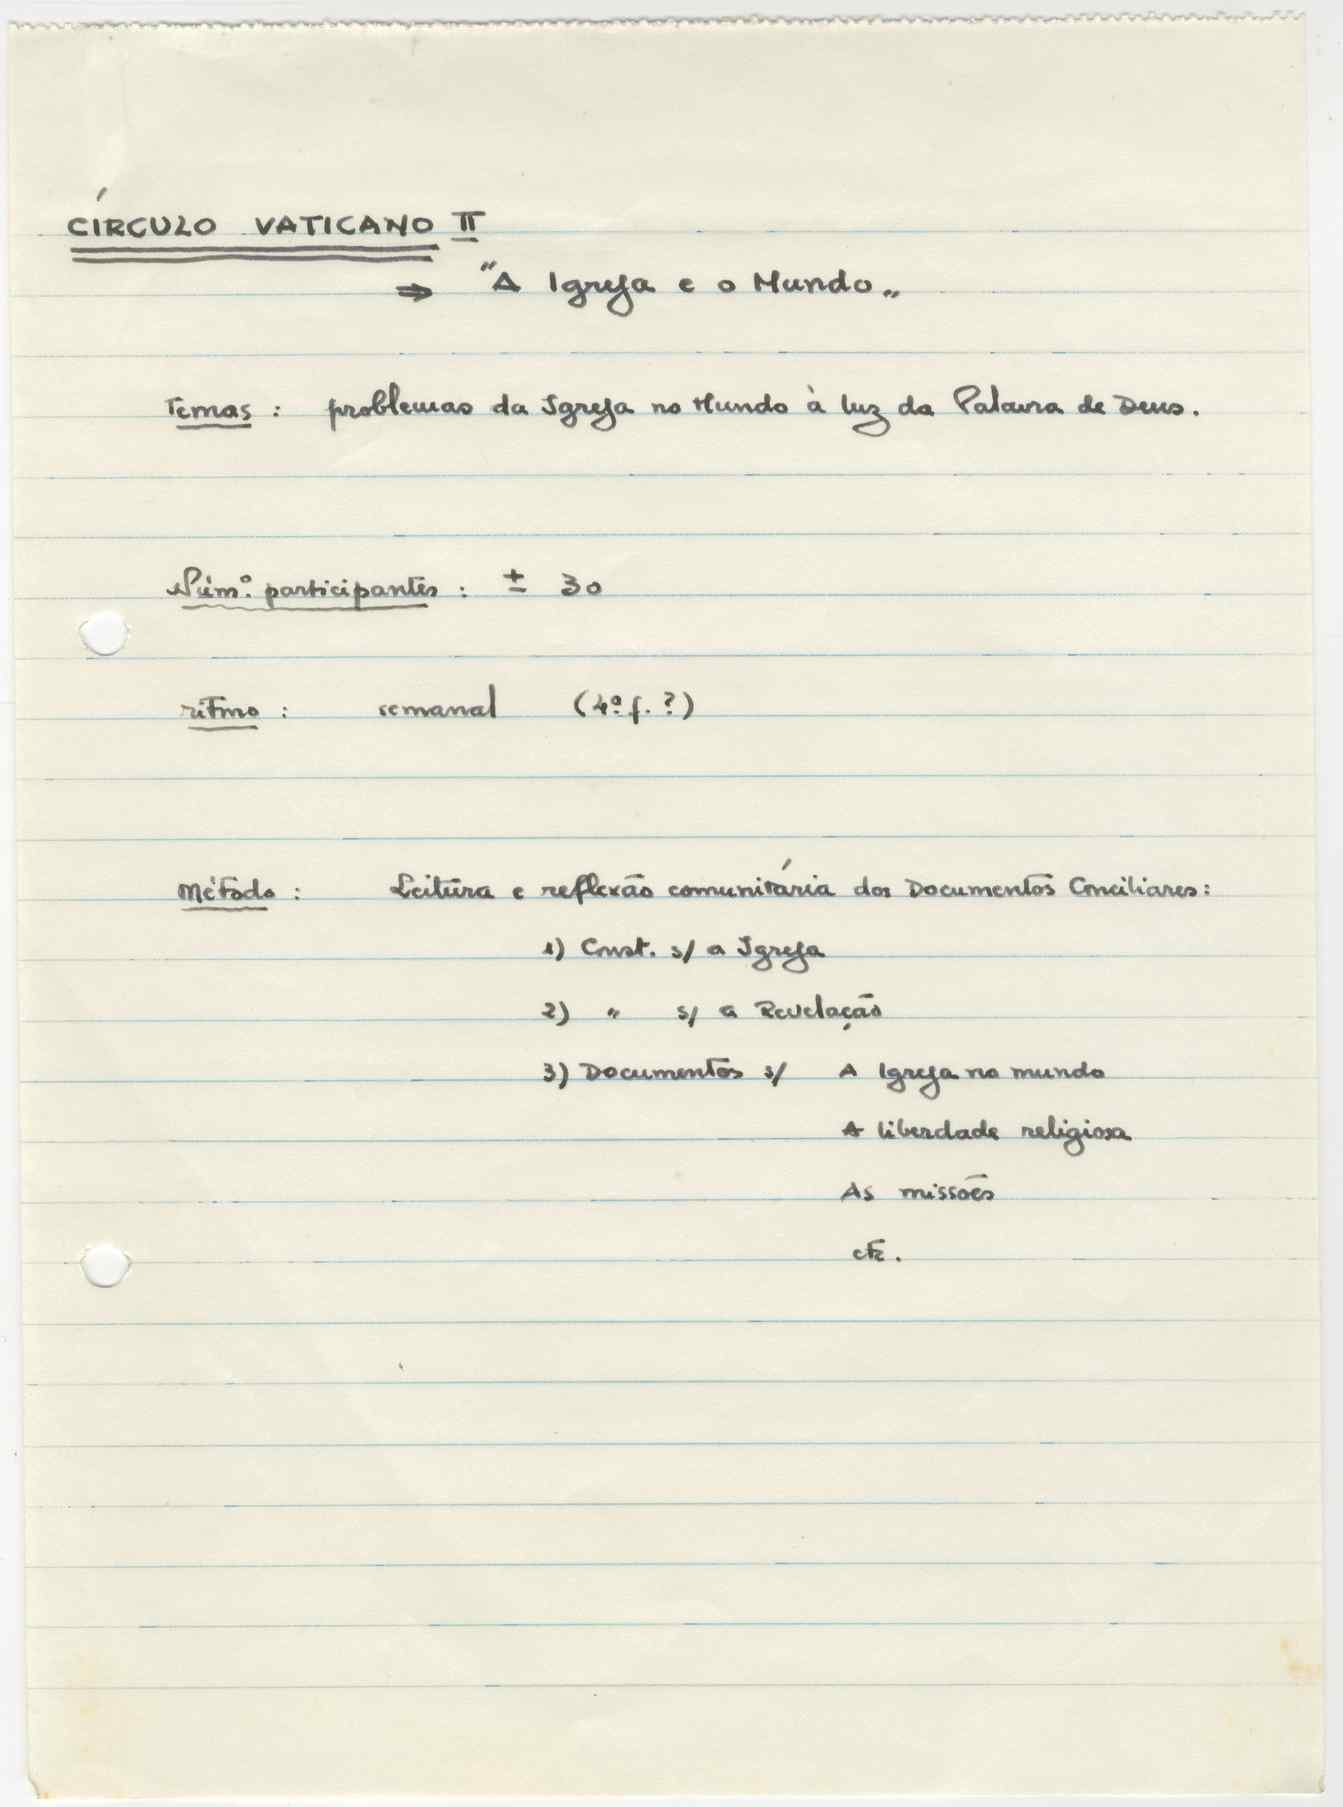 CÍRCULO VATICANO II
⇒ "A Igreja e o Mundo„
Temas : problemas da Igreja no Mundo à luz da Palavra de Deus.
Núm.º participantes : ± 30
ritmo : semanal (4ª f. ?)
Método : Leitura e reflexão comunitária dos Documentos Conciliares :
1) Const. s/ a Igreja
2) " s/ a Revelação
3) Documentos s/ A Igreja no mundo
A liberdade religiosa
As missões
etc.